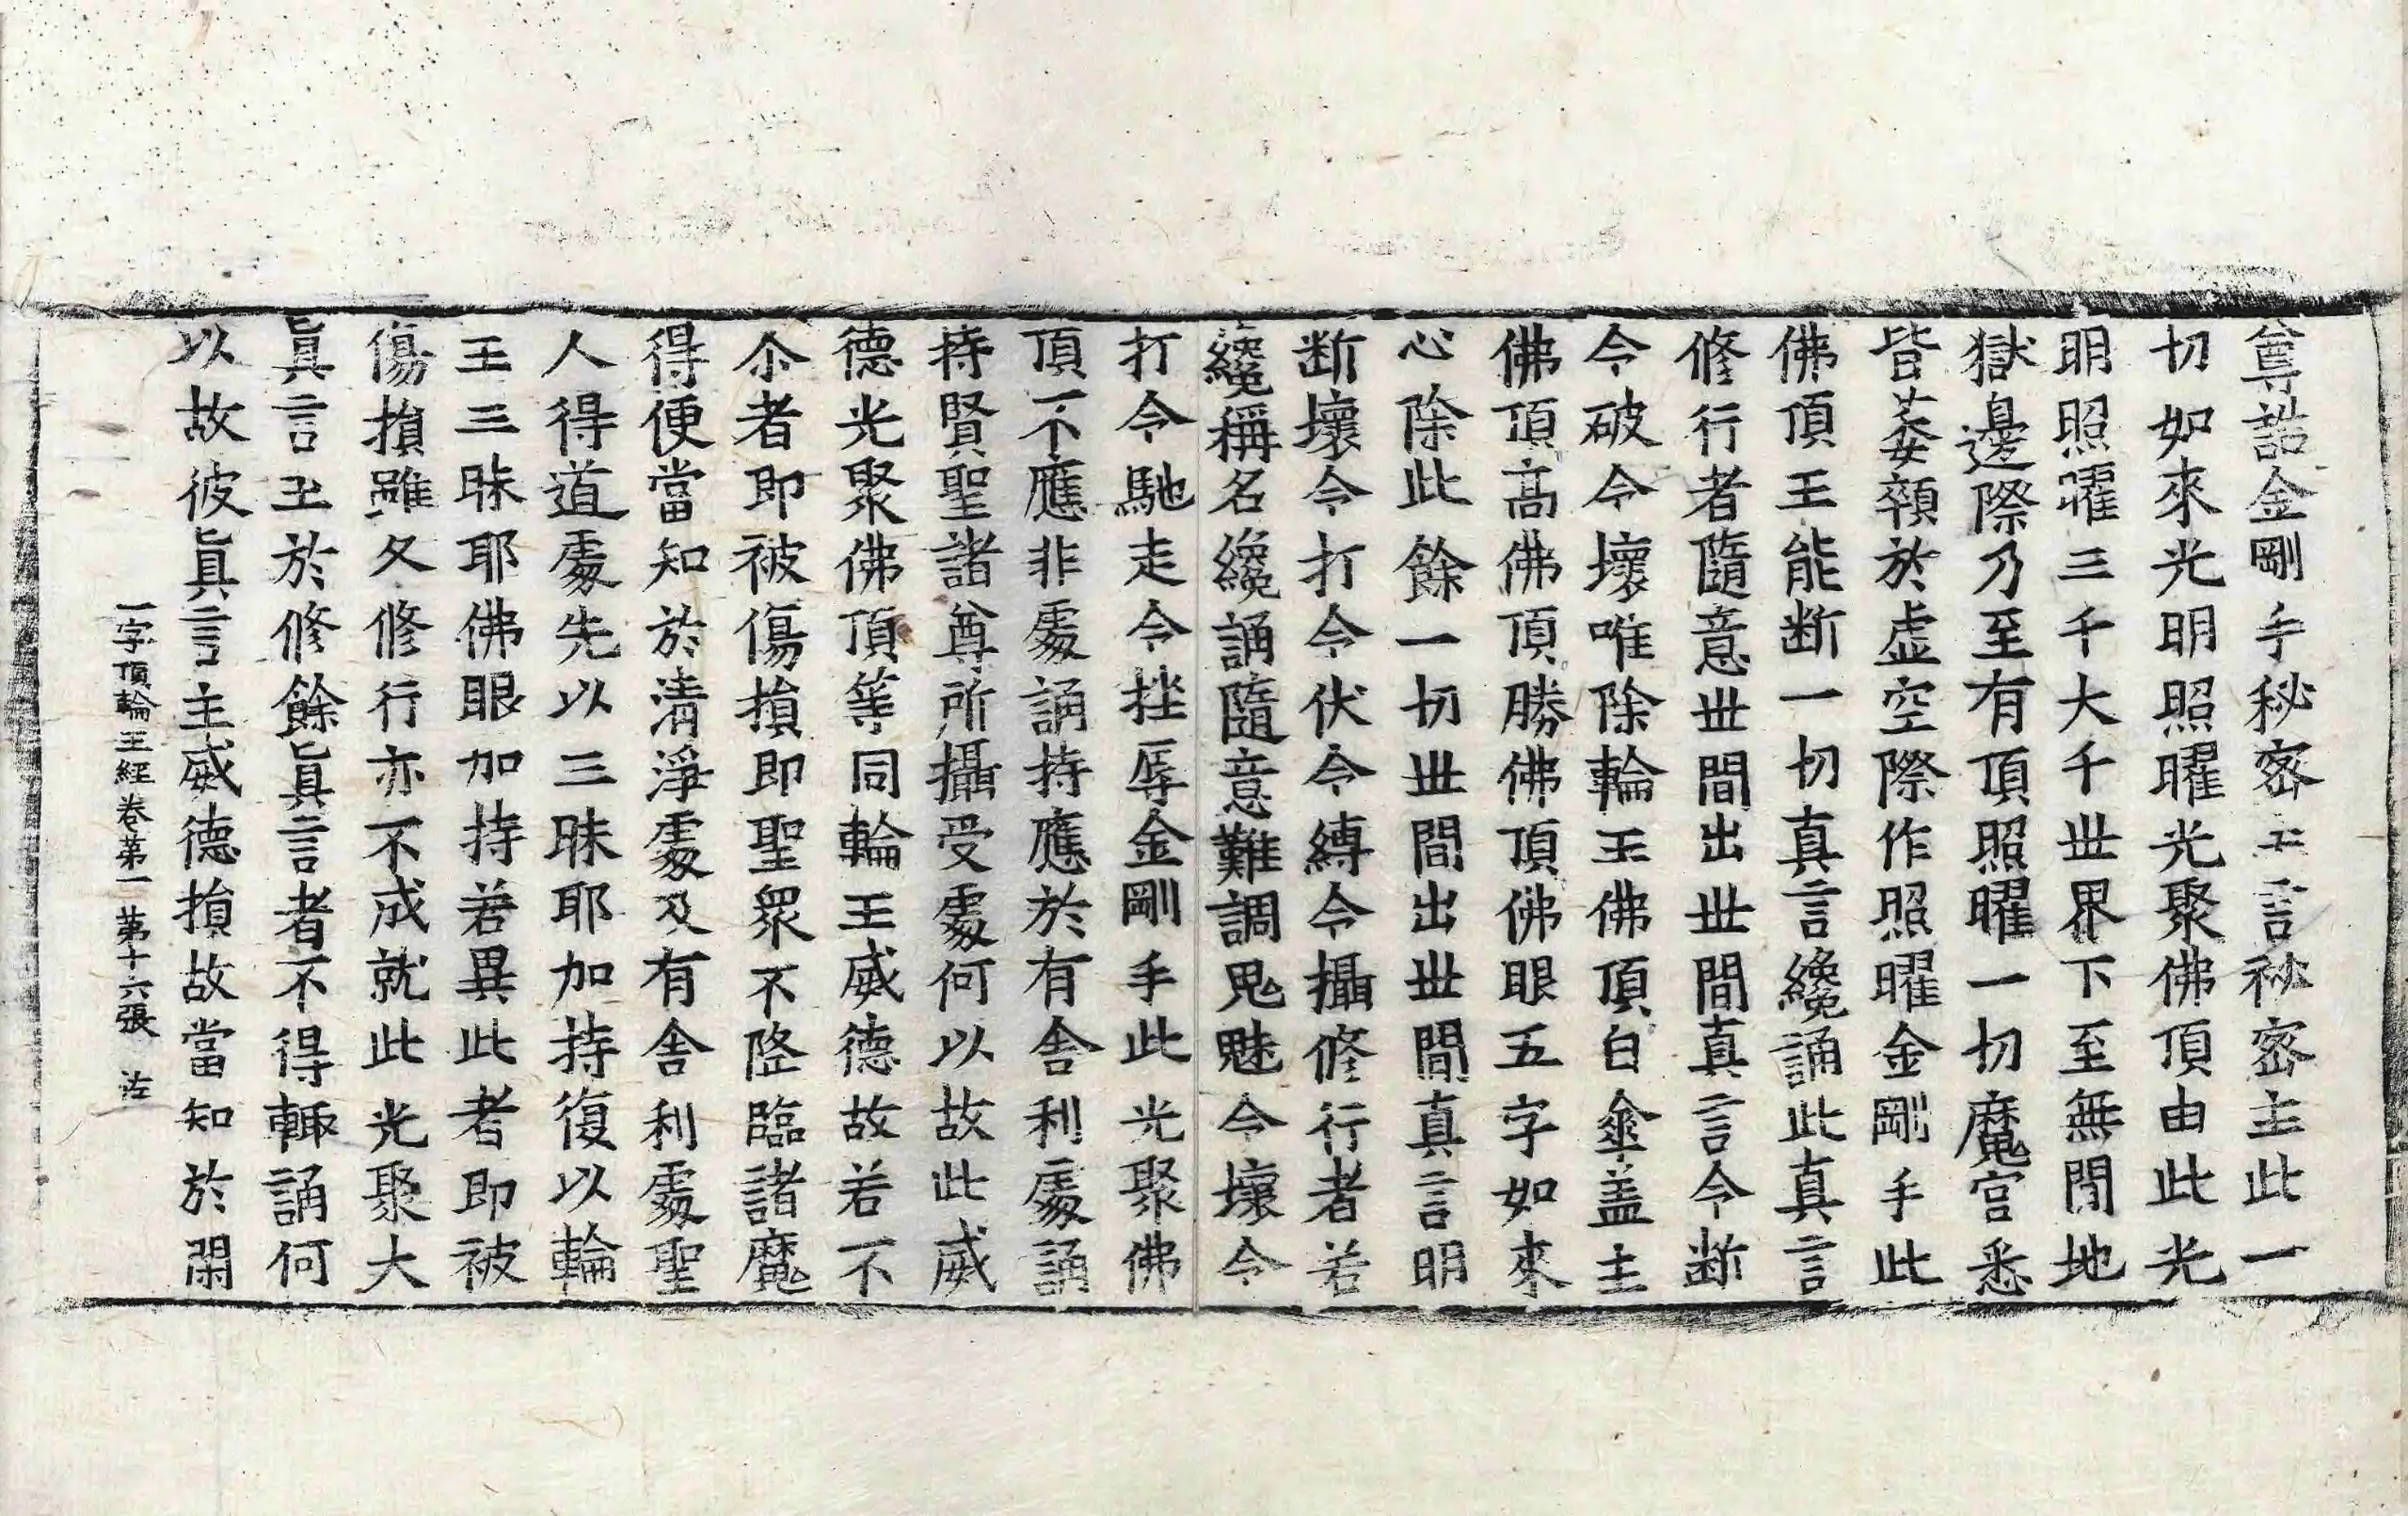 尊誥金剛手秘密主言秘密主此一
切如來光明照曜光聚佛頂由此光
明照曜三千大千世界下至無閒地
獄邊際乃至有頂照曜一切魔宮悉
皆萎顇於虛空際作照曜金剛手此
佛頂王能断一切真言纔誦此真言
修行者隨意世間出世間真言令断
令破令壞唯除輪王佛頂白傘盖主
佛頂高佛頂勝佛頂佛眼五字如來
心除此餘一切世間出世間真言明
断壞令打令伏令縛令攝修行者若
纔稱名纔誦隨意難調鬼魅令壞令
打令馳走令挫辱金剛手此光聚佛
頂不應非處誦持應於有舍利處誦
持賢聖諸尊所攝受處何以故此威
德光聚佛頂等同輪王威德故若不
尒者即被傷損即聖衆不降臨諸魔
得便當知於清淨處及有舍利處聖
人得道處先以三昧耶加持復以輪
王三昧耶佛眼加持若異此者即被
傷損雖久修行亦不成就此光聚大
眞言王於修餘眞言者不得輙誦何
以故彼眞言主威德損故當知於閑
一字頂輪王經卷第一 第十六張 㳒